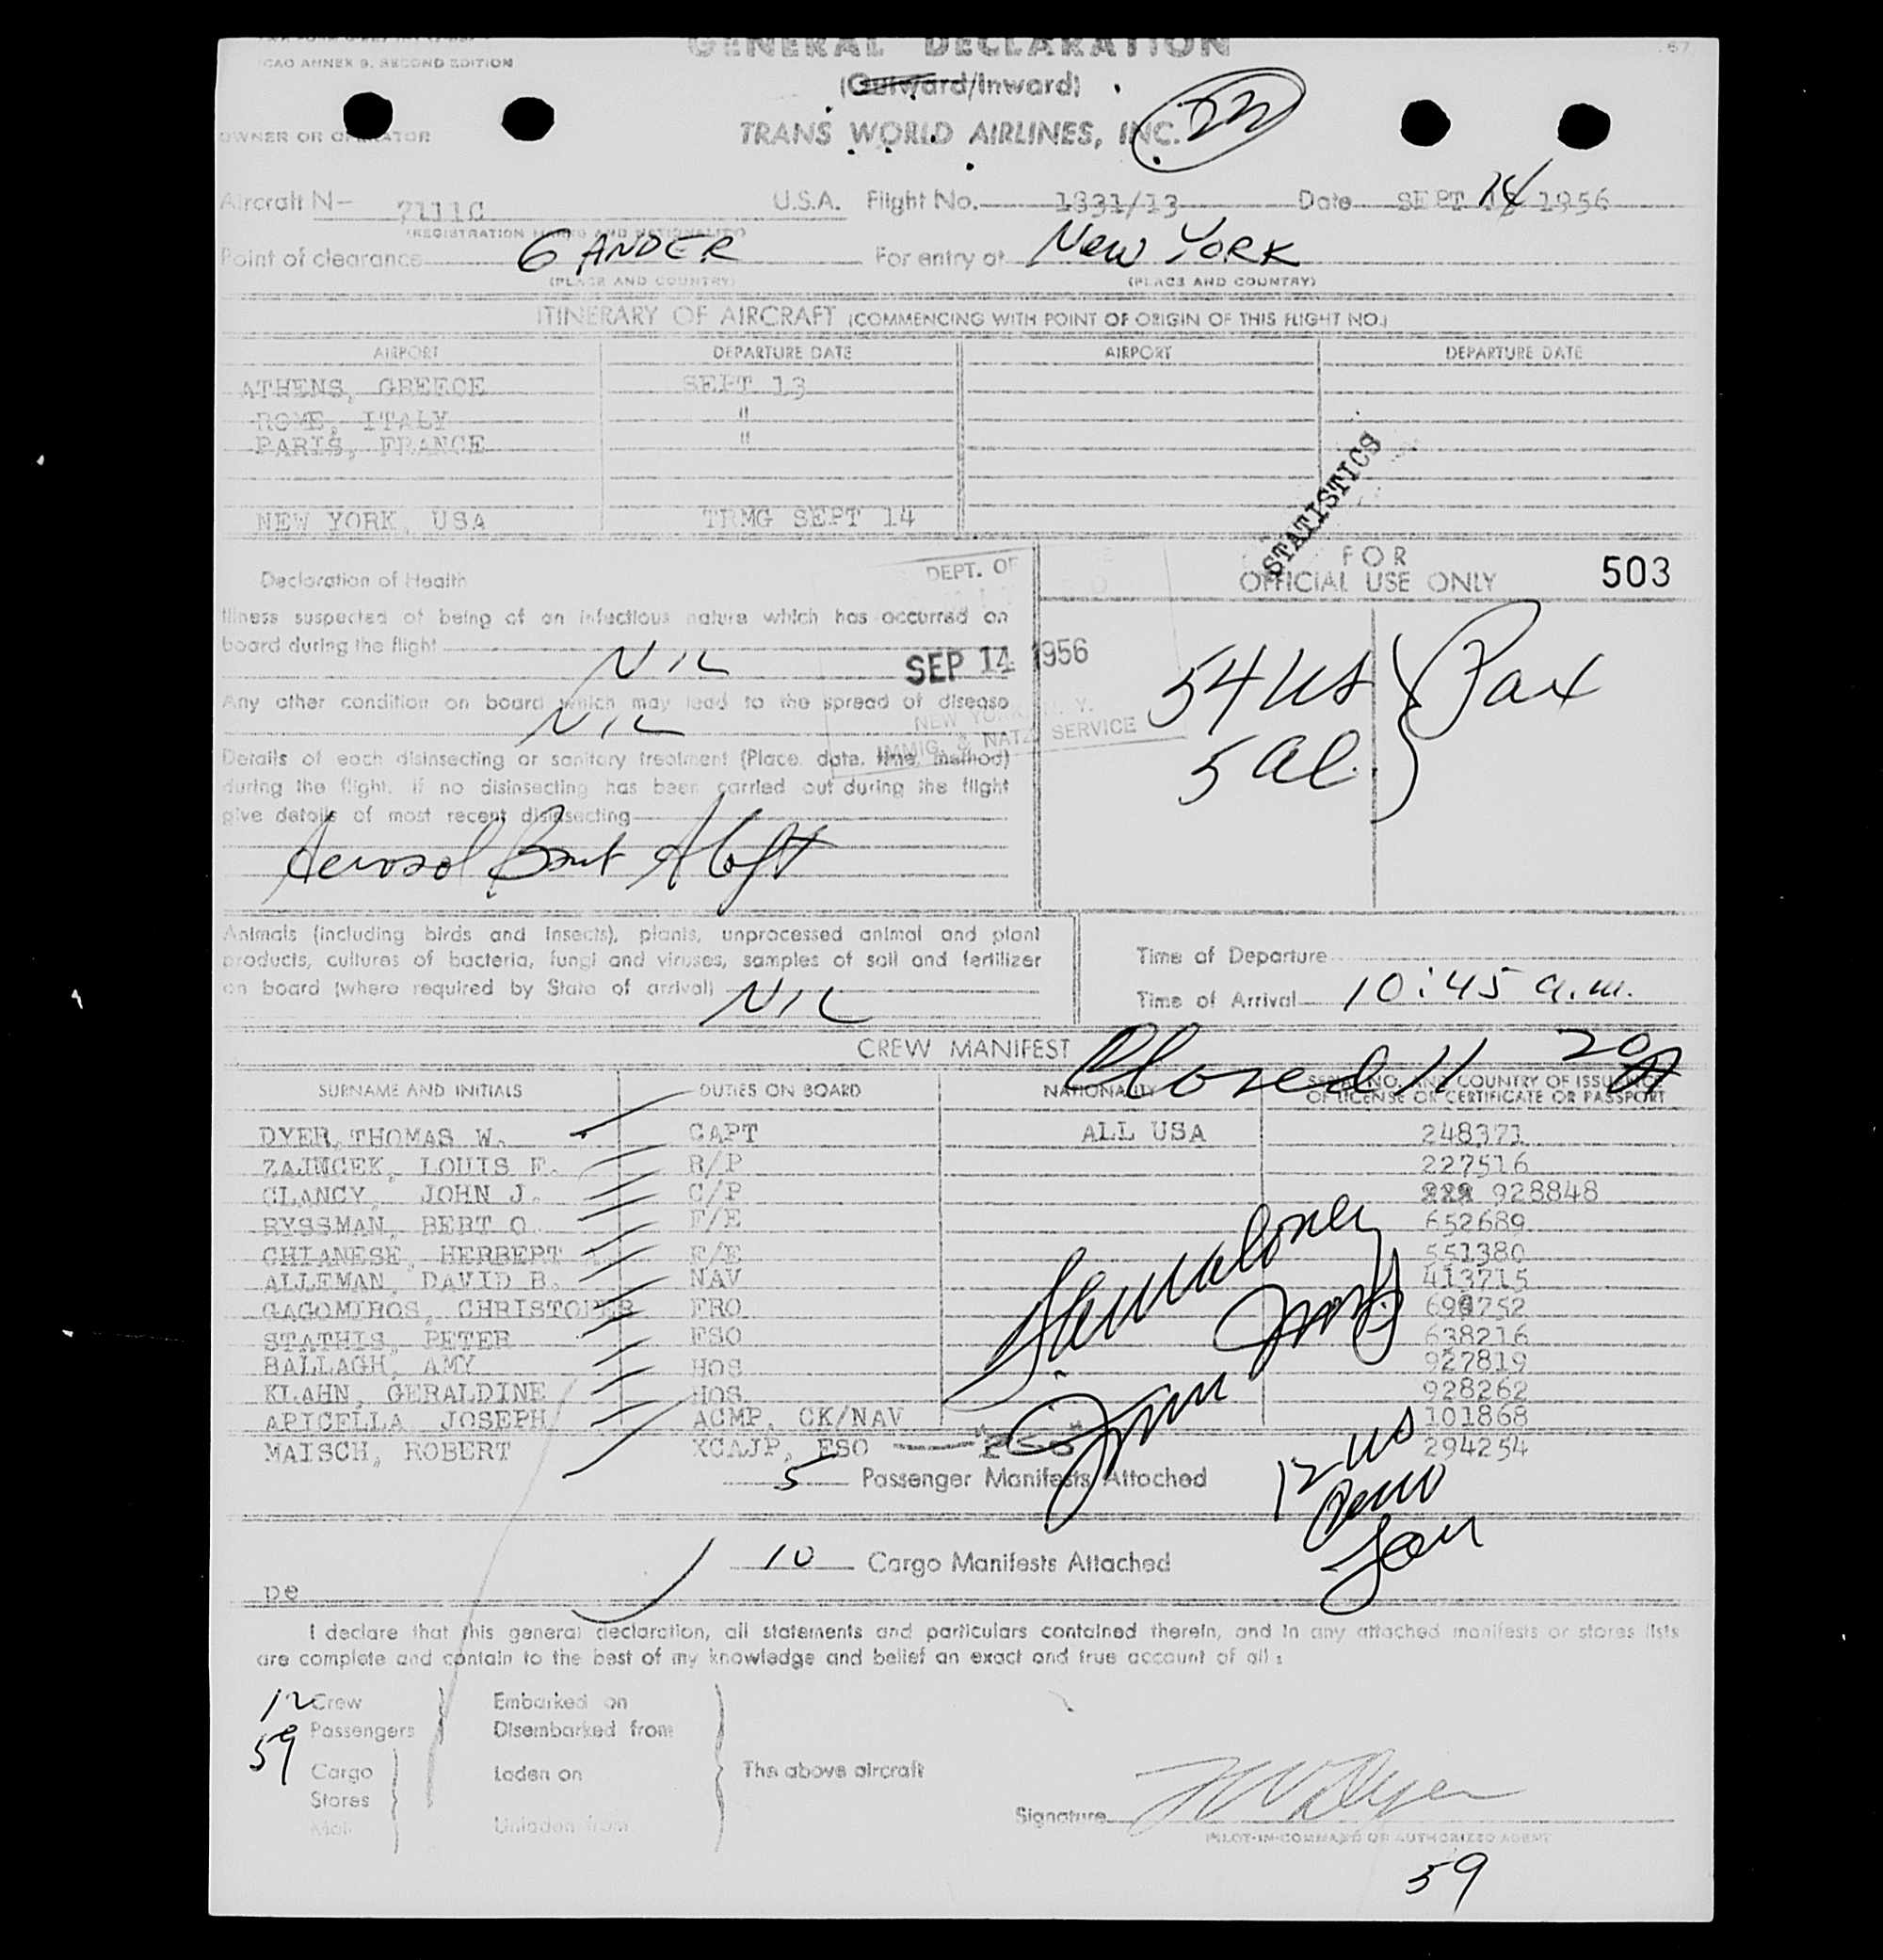 ICAO ANNEX 9, SECOND EDITION
GENERAL DECLARATION
67
(Outward/Inward)
22
OWNER OR OPERATOR
TRANS WORLD AIRLINES, INC.
Aircraft N- 7111C U.S.A. Flight No. 1831/13 Date SEPT 14 1956
(REGISTRATION MARKS AND NATIONALITY)
Point of clearance GANDER For entry at New YORK
(PLACE AND COUNTRY) (PLACE AND COUNTRY)
ITINERARY OF AIRCRAFT (COMMENCING WITH POINT OF ORIGIN OF THIS FLIGHT NO.)
AIRPORT DEPARTURE DATE AIRPORT DEPARTURE DATE
ATHENS, GREECE SEPT 13
ROME, ITALY "
PARIS, FRANCE "
NEW YORK, USA TRMG SEPT 14
STATISTICS
Declaration of Health
FOR
OFFICIAL USE ONLY 503
DEPT. OF
Illness suspected of being of an infectious nature which has occurred on
board during the flight NIL
SEP 14 1956
Any other condition on board which may lead to the spread of disease
NIL
NEW YORK, N. Y.
IMMIG. & NATZ. SERVICE
54 US } Pax
5 al.
Details of each disinsecting or sanitary treatment (Place, date, time, method)
during the flight. If no disinsecting has been carried out during the flight
give details of most recent disinsecting
Aerosol Bomb Aloft
Animals (including birds and insects), plants, unprocessed animal and plant
products, cultures of bacteria, fungi and viruses, samples of soil and fertilizer
on board (where required by State of arrival) NIL
Time of Departure
Time of Arrival 10:45 a.m.
CREW MANIFEST
Closed 11 20
SURNAME AND INITIALS DUTIES ON BOARD NATIONALITY SERIAL NO. AND COUNTRY OF ISSUANCE
OF LICENSE OR CERTIFICATE OR PASSPORT
DYER, THOMAS W. CAPT ALL USA 248371
ZAJNCEK, LOUIS F. R/P 227516
CLANCY, JOHN J. C/P 928848
RYSSMAN, BERT O. F/E 652689
CHIANESE, HERBERT F/E 551380
ALLEMAN, DAVID B. NAV 413715
GAGOMIROS, CHRISTOPER FRO 752
STATHIS, PETER FSO 638216
BALLAGH, AMY HOS 927819
KLAHN, GERALDINE HOS 928262
APICELLA JOSEPH ACMP, CK/NAV 101868
MAISCH, ROBERT XCAJP, FSO 294254
5 Passenger Manifests Attached
12 US
10 Cargo Manifests Attached
pe
I declare that this general declaration, all statements and particulars contained therein, and in any attached manifests or stores lists
are complete and contain to the best of my knowledge and belief an exact and true account of all:
12 Crew Embarked on
59 Passengers Disembarked from
Cargo Laden on The above aircraft
Stores
Mail Unladen from
Signature T W Dyer
PILOT-IN-COMMAND OR AUTHORIZED AGENT
59